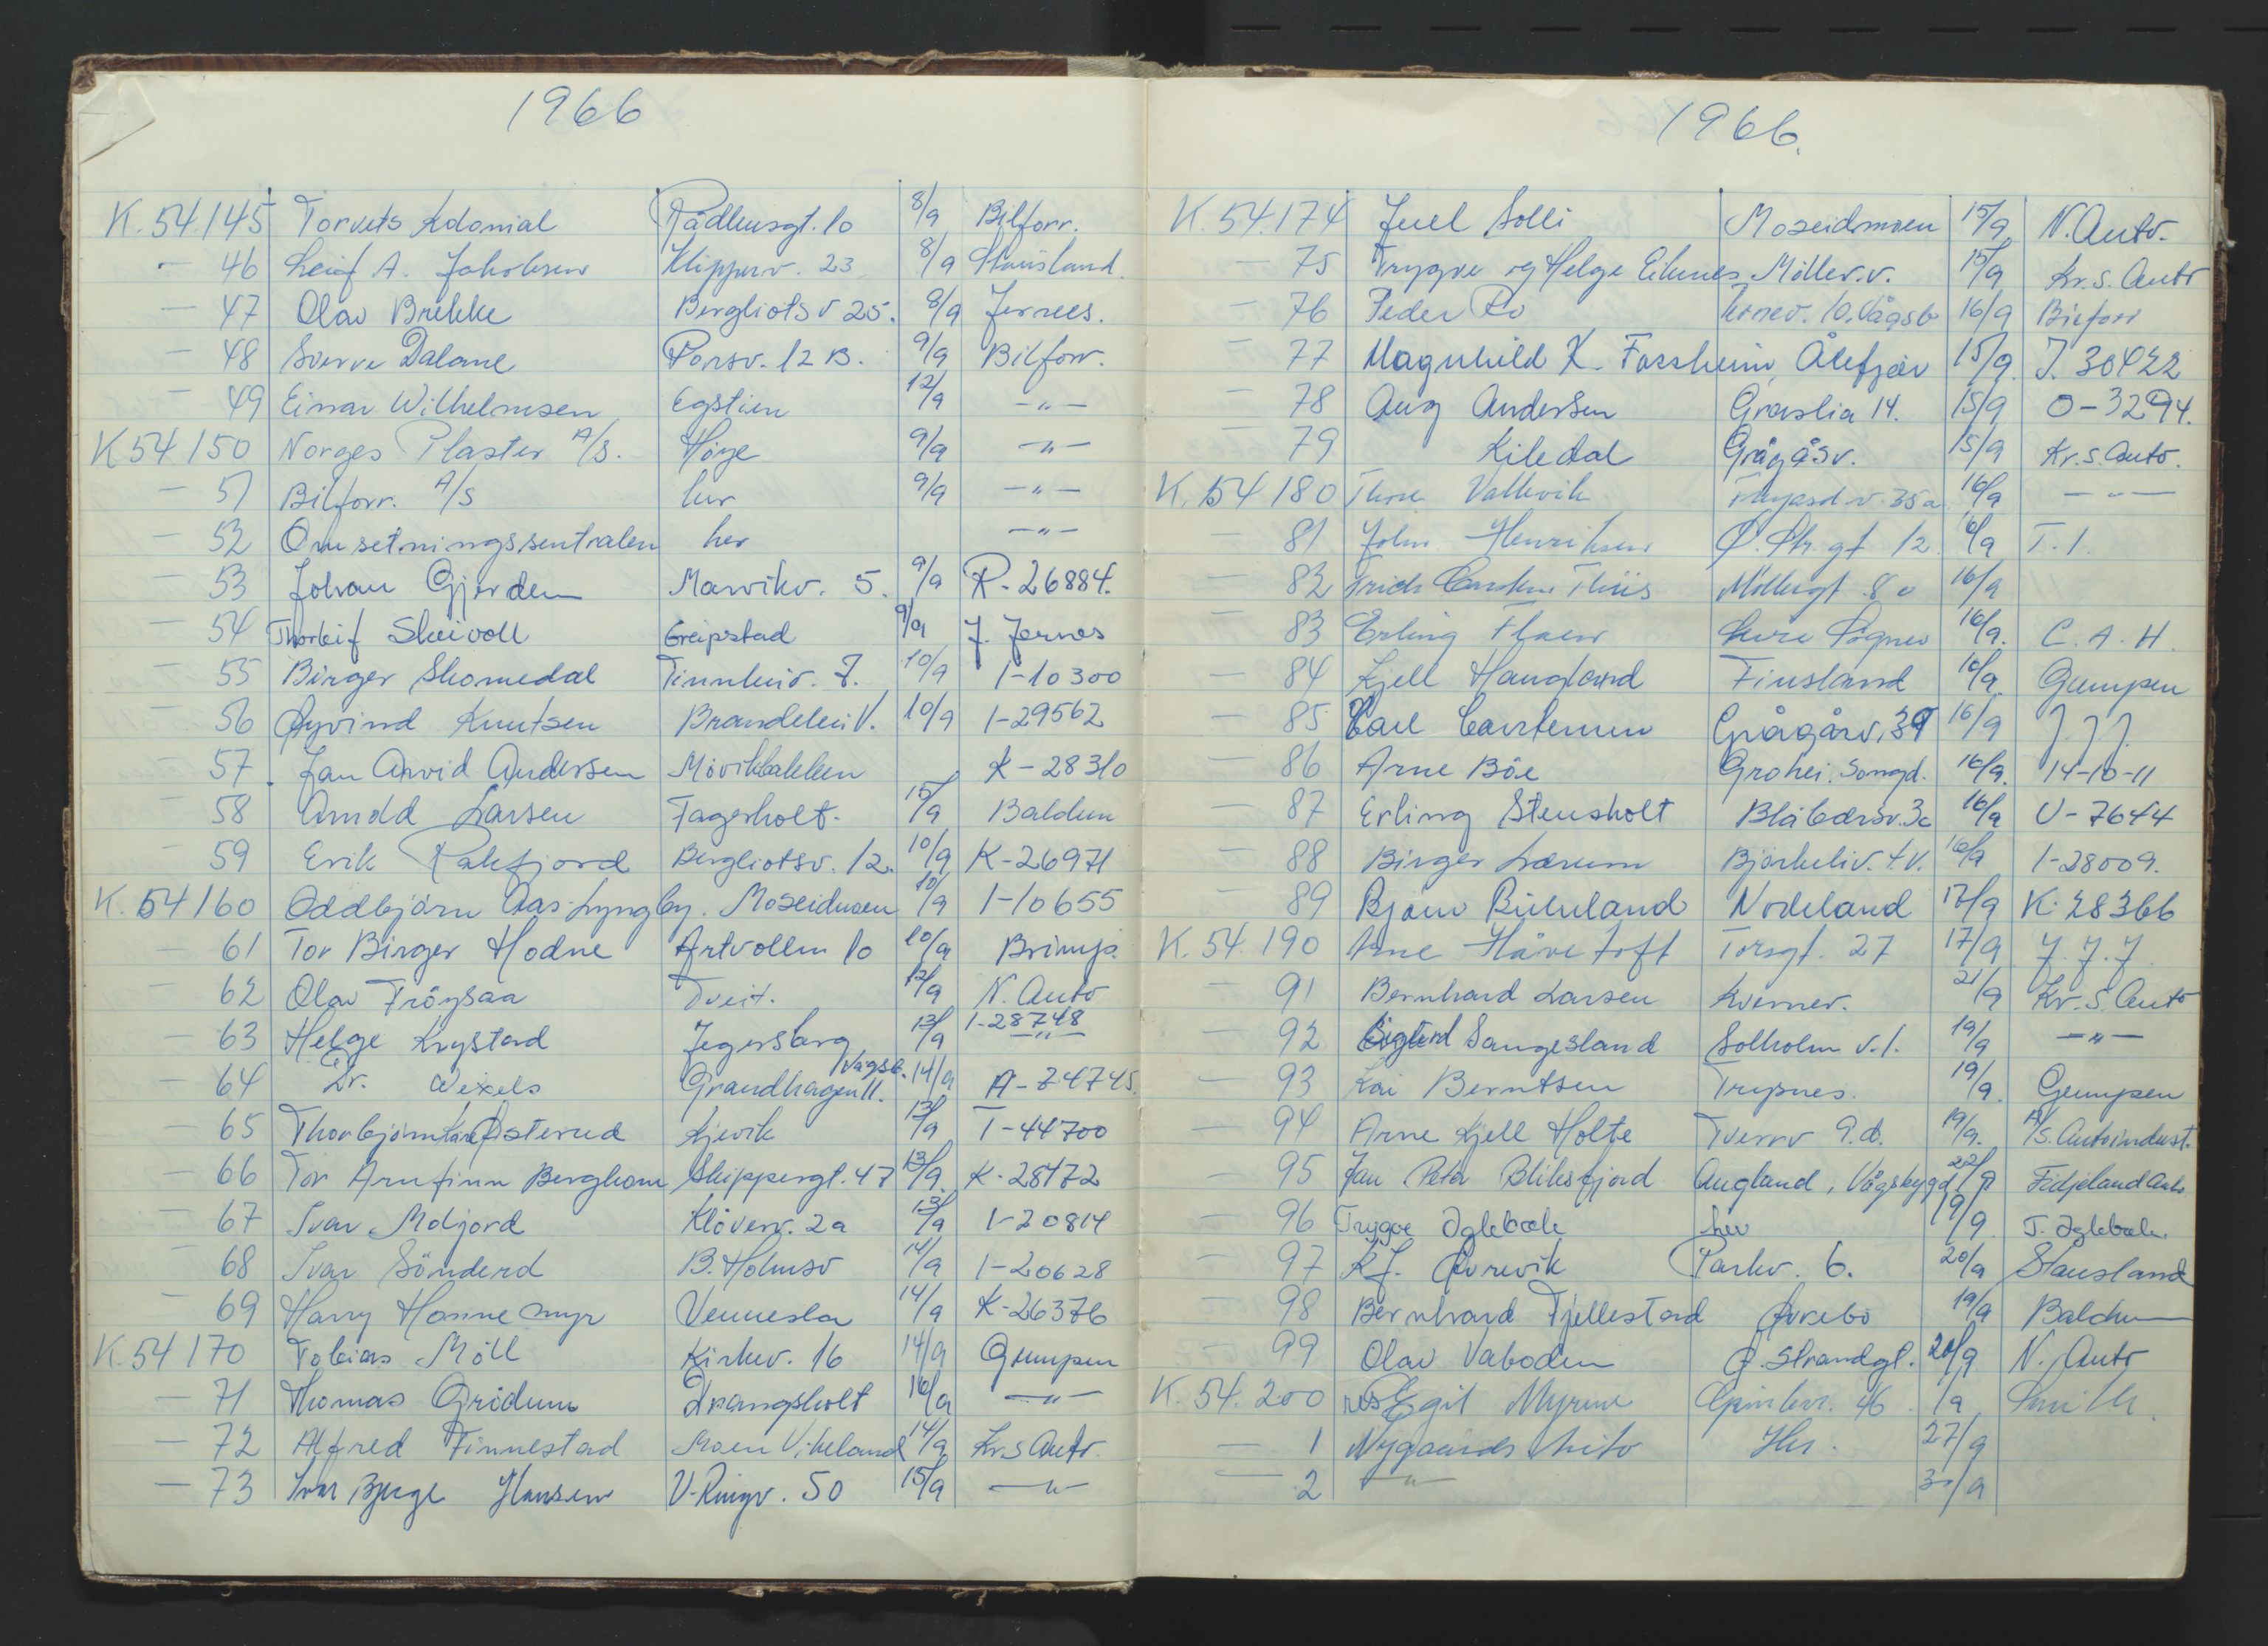 1966
K.54.145 Torvets Kolonial Rådhusgt. 10 8/9 Bilforr.
— 46 Leif A. Jakobsen Klipperv. 23 8/9 Stausland.
— 47 Olav Brekke Bergliots v 25. 8/9 Jernees.
— 48 Sverre Dalane Porsv. 12 B. 9/9 Bilforr.
— 49 Einar Wilhelmsen Egstien 12/9 —„—
K 54 150 Norges Plaster A/S. Höge 9/9 —„—
— 51 Bilforr. A/S her 9/9 —„—
— 52 Omsetningssentralen her —„—
— 53 Johan Gjerden Marvikv. 5. 9/9 R-26884.
— 54 Thorleif Skeivoll Greipstad 9/9 J. Jernes
— 55 Birger Skomedal Tinnheiv. 7. 10/9 I-10300
— 56 Øyvind Knutsen Brandehei V. 10/9 I-29562
— 57 Jan Arvid Andersen Mövikbakken K-28310
— 58 Arnold Larsen Fagerholt. 15/9 Balchen
— 59 Erik Rakfjord Bergliotsv. 12. 10/9 K-26971
K.54 160 Oddbjörn Aas-Lyngby. Moseidmoen 10/9 I-10655
— 61 Tor Birger Hodne Artvollen 10 10/9 Brimps.
— 62 Olav Fröysaa Tveit. 12/9 N. Auto
— 63 Helge Krystad Jegersberg 13/9 I-28748 —„—
— 64 Dr. Wexels Grandhagen 11. Vågsb. 14/9 A-74745.
— 65 Thorbjörn Kåre Østerud Kjevik 13/9 T-44700
— 66 Tor Arnfinn Berghom Skippergt. 47 13/9 K-28172
— 67 Ivar Moljord Klöverv. 2a 13/9 I-20814
— 68 Ivar Sönderd B. Holmsv 14/9 I-20628
— 69 Harry Hannemyr Vennesla 14/9 K-26376
K.54 170 Tobias Möll Kirkev. 16 14/9 Gumpen
— 71 Thomas Gridum Drangsholt 16/9 —„—
— 72 Alfred Finnestad Moen Vikeland 14/9 Kr.S Auto.
— 73 Ivar Bjuge Hansen V-Ringv. 50 15/9 —„—
1966.
K.54.174 Juel Solli Moseidmoen 15/9 N. Auto.
— 75 Trygve og Helge Eiknes Möllev.v. 15/9 Kr.S. Auto
— 76 Peder Ro 10. Vågsb 16/9 Bilforr
— 77 Magnhild K. Forsheim, Ålefjær 15/9 J. 30422
— 78 Aug Andersen Graslia 14. 15/9 O-3294.
— 79 Kiledal Grågåsv. 15/9 Kr.S. Auto.
K.54 180 Thore Vallevik v. 35a 16/9 —„—
— 81 John Henriksen Ø. Str. gt 12. 6/9 T.1.
— 82 Carsten Thiis Möllegt 8 16/9
— 83 Erling Flaen 16/9. C.A.H.
— 84 Kjell Haugland Finsland 16/9. Gumpen
— 85 Carl Carstensen Grågåsv. 39 16/9 J.J.J.
— 86 Arne Böe Grohei. Songd. 16/9. 14-10-11
— 87 Erling Stensholt Blåbærsv. 3c 16/9 U-7644
— 88 Birger Lærum Bjørkeliv. t.V. 16/9 I-28009.
— 89 Bjørn Bueland Nodeland 17/9 K-28366
K.54.190 Arne Håvetoft Torsgt. 27 17/9 J.J.J.
— 91 Bernhard Larsen Kvernev. 21/9 Kr.S. Auto
— 92 Sigurd Saugesland Solholm v.1. 19/9 —„—
— 93 Kai Berntsen Trysnes. 19/9. Gumpen
— 94 Arne Kjell Holte Tverrv 9.b. 19/9. A/S. Autoindust.
— 95 Jan Petter Bliksfjord Augland, Vågsbygd 22/9 Fidjeland Auto
— 96 Trygve Iglebæk her 19/9. T. Iglebæk.
— 97 K.J. Øvrevik Parkv. 6. 20/9 Stausland
— 98 Bernhard Fjellestad Øvrebö 19/9 Balchen
— 99 Olav Vaboden Ø. Strandgt. 20/9 N. Auto
K.54.200 res Egil Myrene 46. /9 Smith.
— 1 Nygaards Auto Her. 27/9
— 2 —„— 30/9